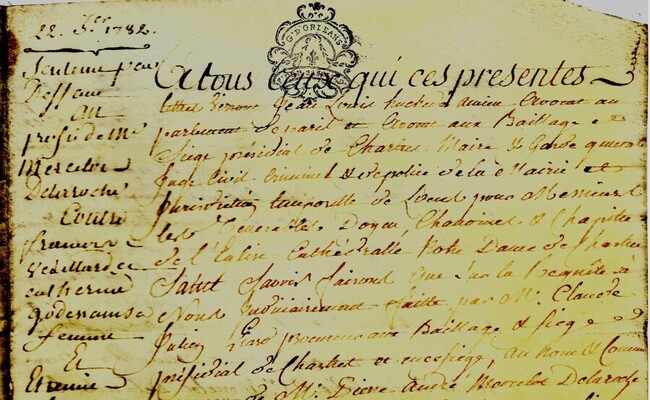 22. 7.bre 1782.
Sentence par
Deffaut
au
profit de Me
Mercelot
Delaroche
Contre
francois
veillard et
catherine
godenamse
femme
Et
Etienne
G. D'ORLEANS
A tous Ceux qui ces presentes
lettres Verront Jean Louis ancien Avocat au
parlement de paris et avocat aux Bailliage et
Siege présidial de Chartres Maire & Garde
Juge Civil Criminel & de police de la Mairie et
Jurisdiction temporelle de Loens pour Messieurs
les Venerables Doyen, Chanoines & Chapitre
de l'Eglise Cathédralle Notre Dame de Chartres
Salut Savoir faisons que Sur la Requête à
Nous judiciairement faitte par Me. Claude
Julien procureur aux Bailliage & Siege
présidial de Chartres et en ce siege, au nom & Comme
de Me. Pierre André Mercelot Delaroche